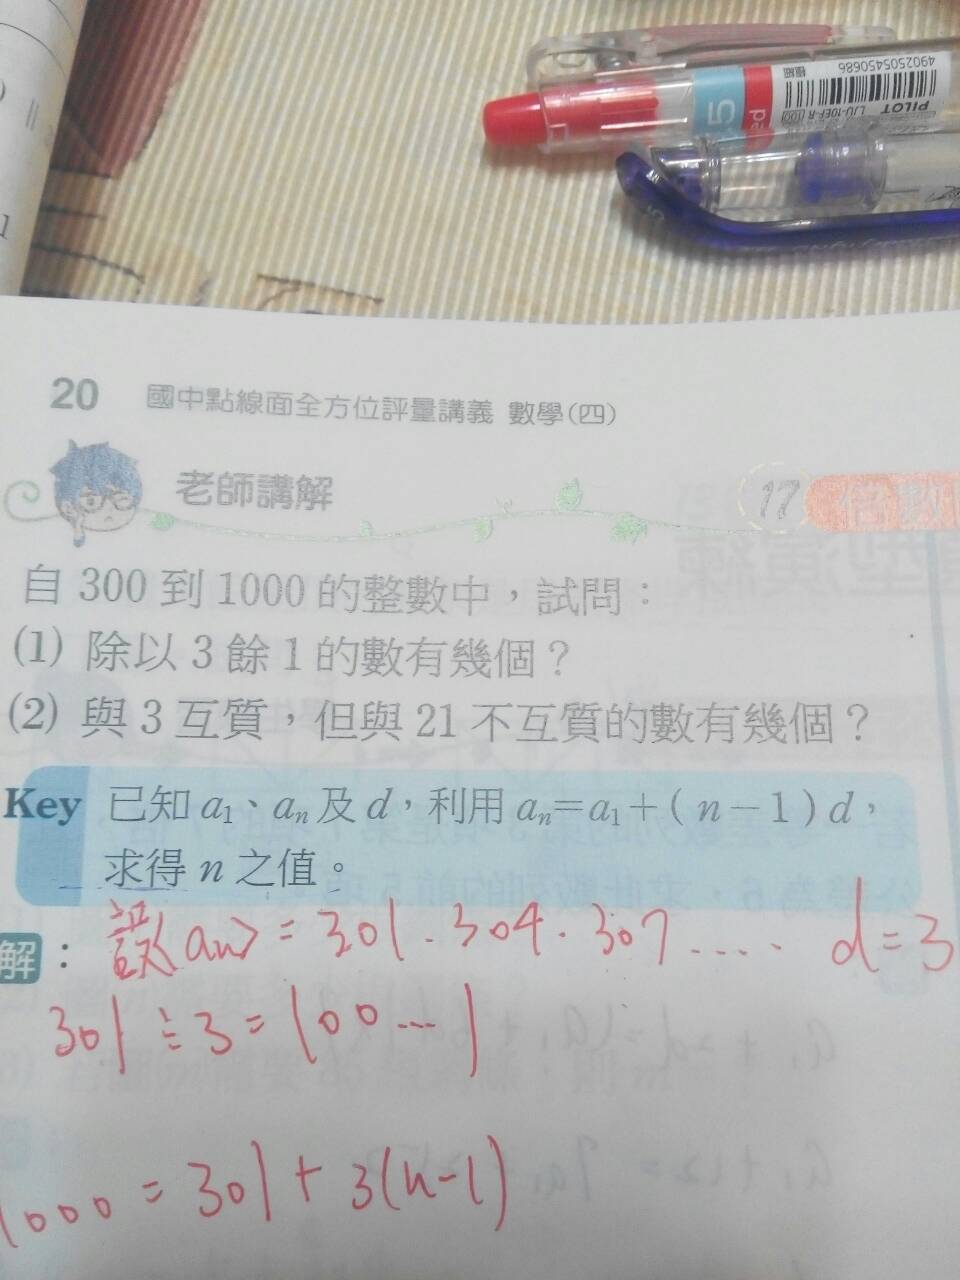 4902505450686
PILOT
LJU-10EF-R
20 國中點線面全方位評量講義 數學(四)
老師講解
17 倍數
自 300 到 1000 的整數中，試問：
(1) 除以 3 餘 1 的數有幾個？
(2) 與 3 互質，但與 21 不互質的數有幾個？
Key 已知 a₁、aₙ 及 d，利用 aₙ=a₁+(n−1)d，
求得 n 之值。
解： 設<an> = 301.304.307..... d=3
301÷3=100...1
1000=301+3(n-1)